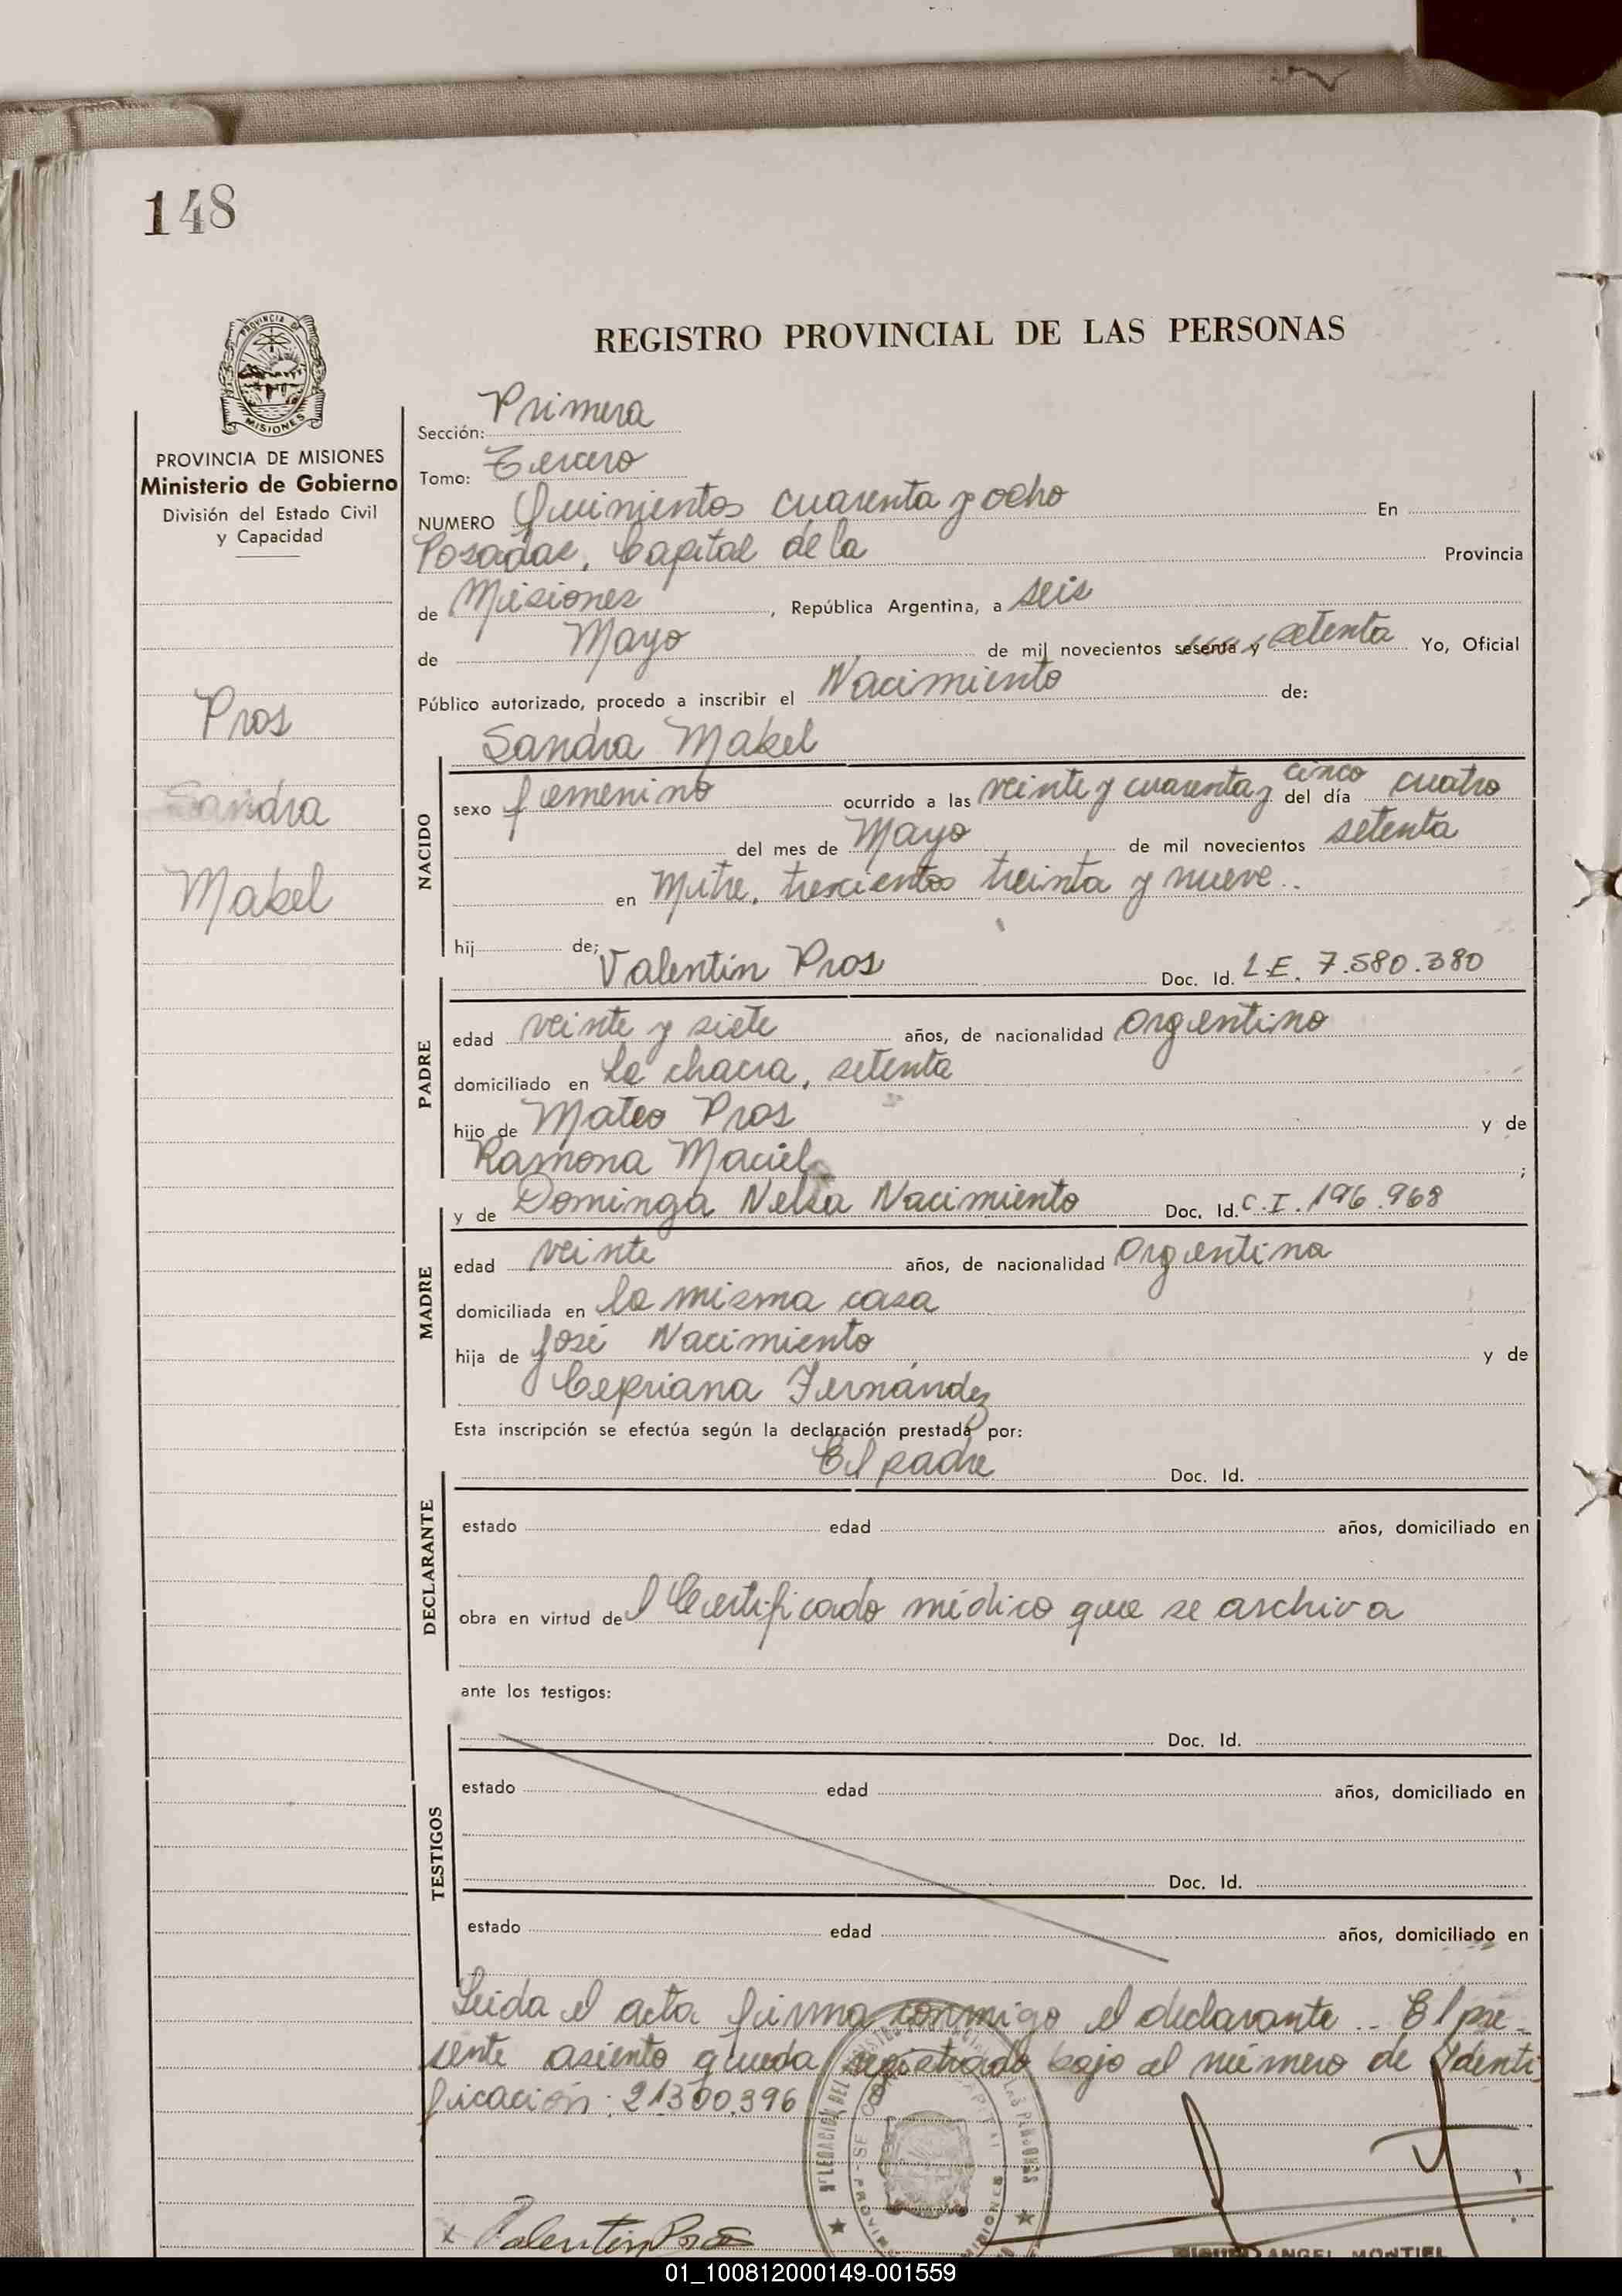 148
REGISTRO PROVINCIAL DE LAS PERSONAS
PROVINCIA DE
MISIONES
PROVINCIA DE MISIONES
Ministerio de Gobierno
División del Estado Civil
y Capacidad
Pros
Sandra
Mabel
Sección: Primera
Tomo: Tercero
NUMERO Quinientos cuarenta y ocho En
Posadas, Capital de la Provincia
de Misiones, República Argentina, a seis
de Mayo de mil novecientos sesenta y setenta Yo, Oficial
Público autorizado, procedo a inscribir el Nacimiento de:
Sandra Mabel
NACIDO
sexo femenino ocurrido a las veinte y cuarenta y cinco del día cuatro
del mes de Mayo de mil novecientos setenta
en Mitre, trescientos treinta y nueve..
hij de; Valentin Pros Doc. Id. L.E. 7.580.380
PADRE
edad veinte y siete años, de nacionalidad argentino
domiciliado en la chacra, setenta
hijo de Mateo Pros y de
Ramona Maciel ;
y de Dominga Nelsa Nacimiento Doc. Id. C.I. 196.968
MADRE
edad veinte años, de nacionalidad argentina
domiciliada en la misma casa
hija de José Nacimiento y de
Cepriana Fernández
Esta inscripción se efectúa según la declaración prestada por:
El padre Doc. Id.
DECLARANTE
estado edad años, domiciliado en
obra en virtud del Certificado médico que se archiva
ante los testigos:
Doc. Id.
TESTIGOS
estado edad años, domiciliado en
Doc. Id.
estado edad años, domiciliado en
Leida el acta firma conmigo el declarante.. El pre-
sente asiento queda registrado bajo el número de Identi-
ficación: 21300.396
x Valentin Pros
ANGEL MONTIEL
01_100812000149-001559